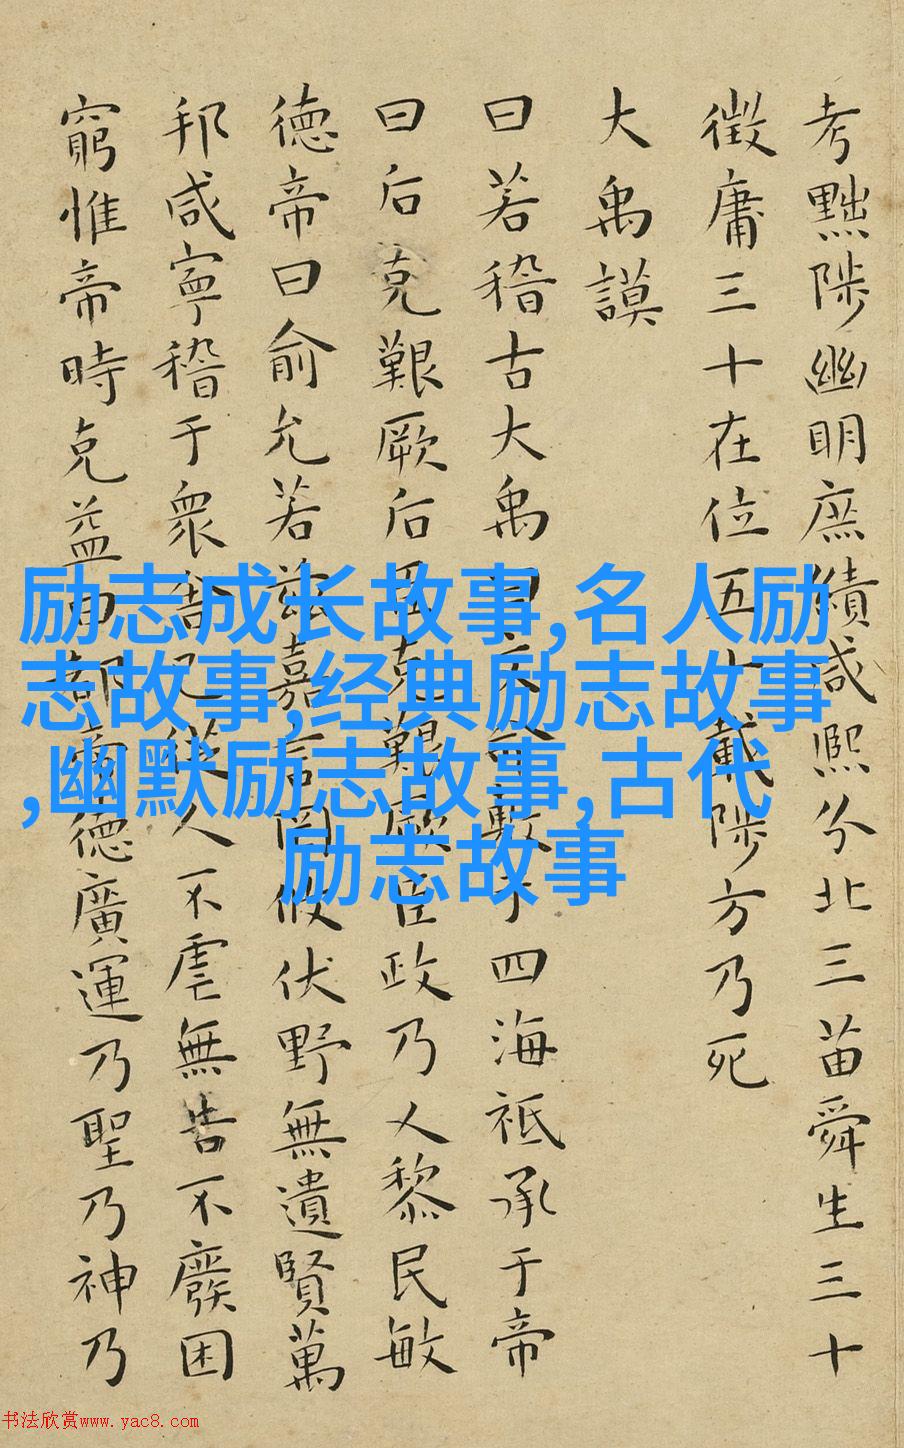 考黜陟幽明庶績咸熙分北三苗舜生三十
徵庸三十在位五十載陟方乃死
大禹謨
曰若稽古大禹曰文命敷于四海祗承于帝
曰后克艱厥后臣克艱厥臣政乃乂黎民敏
德帝曰俞允若茲嘉言罔攸伏野無遺賢萬
邦咸寧稽于衆舍己從人不虐無告不廢困
窮惟帝時克益曰都帝德廣運乃聖乃神乃
励志成长故事,名人励
志故事,经典励志故事
,幽默励志故事,古代
励志故事
书法欣赏www.yac8.com